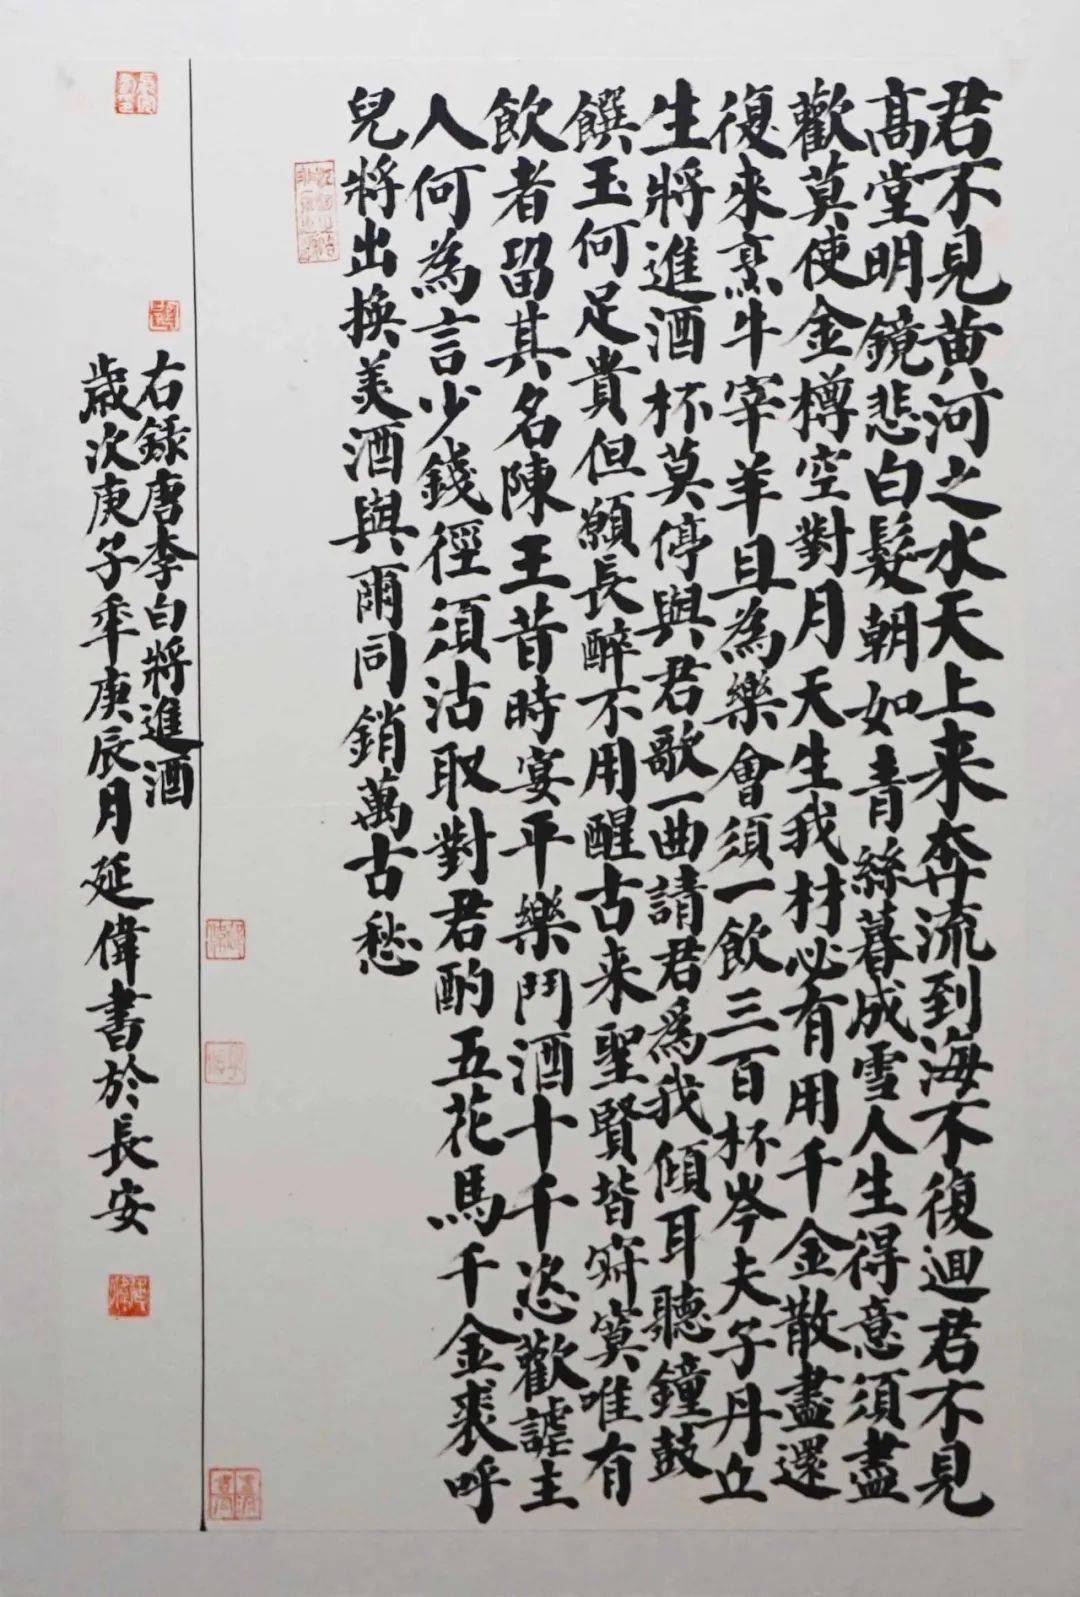 君不見黄河之水天上来奔流到海不復迴君不見
髙堂明鏡悲白髮朝如青絲暮成雪人生得意須盡
歡莫使金樽空對月天生我材必有用千金散盡還
復来烹牛宰羊且為樂會須一飲三百杯岑夫子丹丘
生將進酒杯莫停與君歌一曲請君爲我傾耳聽鐘鼓
饌玉何足貴但願長醉不用醒古来聖賢皆寂寞唯有
飲者留其名陳王昔時宴平樂鬥酒十千恣歡謔主
人何為言少錢徑須沽取對君酌五花馬千金裘呼
兒將出換美酒與爾同銷萬古愁
右錄唐李白將進酒
歲次庚子年庚辰月延偉書於長安